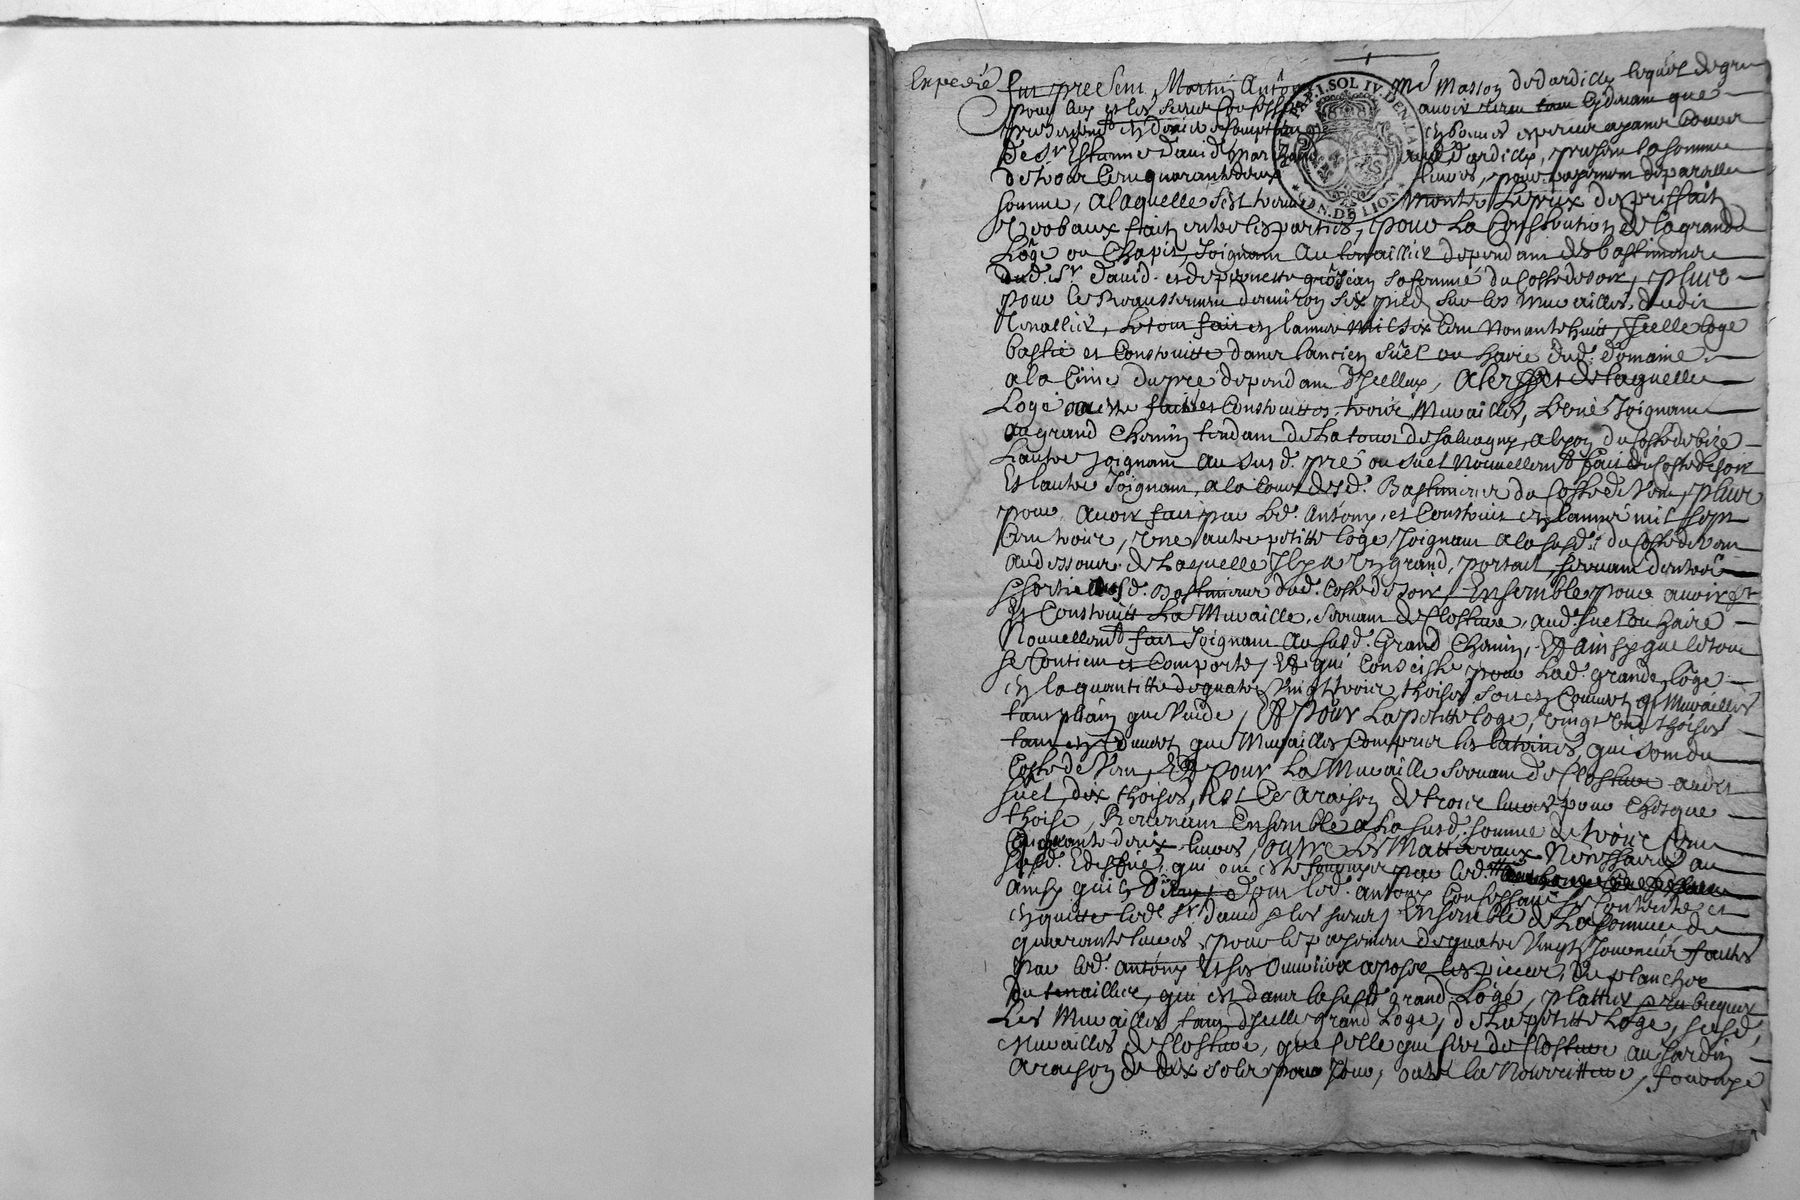 Expedié
fut present Martin Antony Me Masson de dardilly lequel de gre
pour luy et les siens Confesse avoir receu cy devant que
presentement en deniers comptans en bonnes especes ayant cours
de Sr Estienne david marchand dardilly, present la somme
de trois Cens quarante deux livres, pour payement de pareille
somme, a laquelle s'est treuvé monter Le prix de prisfait
Verbaux faits entre les parties, pour La Construction de la grande
Loge ou Chapit, Joignant Au tenaillier dependant des bastiments
dud. Sr david et de pierrette grosjean sa femme du Costé de soir, plus
pour le Reaussement denviron six pieds sur les Murailles dudit
tenallier, Le tout fait en lannee mil six Cens Nonante huit, Icelle loge
bastie et Construitte dans lancien suel ou haire dud. domaine
a la Cime du pre dependant d'Icelluy, A leffet de laquelle
Loge ont este faites et Construittes trois Murailles, L'une Joignant
au grand Chemin tendant de La tour de salvagny, a lyon du Costé de bize
Lautre Joignant Au susd. pré ou suel Nouvellemt fait du Costé de soir
Et lautre Joignant, a la Cour desd. Bastiments du Costé de Vent, plus
pour Avoir fait par led. Antony, et Construit en lannée mil sept
Cens trois, Une autre petitte loge Joignant a la susd. du Costé de vent
au dessous de Laquelle Il y a Un grand, portail, servant d'entrée
& sortie Ausd. Bastiments dud. Costé de soir, Ensemble pour avoir fait
Et Construitt La Muraille, servant de Closture, aud. suel ou haire
Nouvellemt fait Joignant Au susd. Grand Chemin, Et ainsy que le tout
se Contient et Comporte, Et qui Consciste pour Lad. grande loge
en la quantitte de quatre Vingt trois thoises soit en Couvert que Murailles
tant plain que Vuide, Et pour La petitte loge, vingt une thoises
tant en Couvert que Murailles Compris les latrines, qui sont du
Costé de Vent, Et pour La Muraille servant de Closture audit
suel, dix thoises, Et Ce A raison de trois livres pour Chasque
thoise, Revenant Ensemble a La susd. somme de trois Cens
quarante deux livres, outre Les Matteriaux Necessaires au
susd. Edeffice, qui ont esté fournys par led.
ainsy quil dient, dont led. antony Confessant se Contente et
en quitte led. Sr david & les siens, Ensemble de La somme de
quarante livres, pour le payement de quatre Vingt Journées faites
par led. antony & ses ouvriers a poser les pieces, du plancher
du tenaillier, qui est dans la susd. grand Loge, plattrir
Les Murailles tant d'Icelle grand Loge, de La petitte Loge, susd.
Murailles de Closture, que Celle qui sert de Closture au Jardin
A raison de dix sols pour Jour, outre La Nourritture, fournye
PAP. I. SOL IV. DEN. LA F.
GEN. DE LION